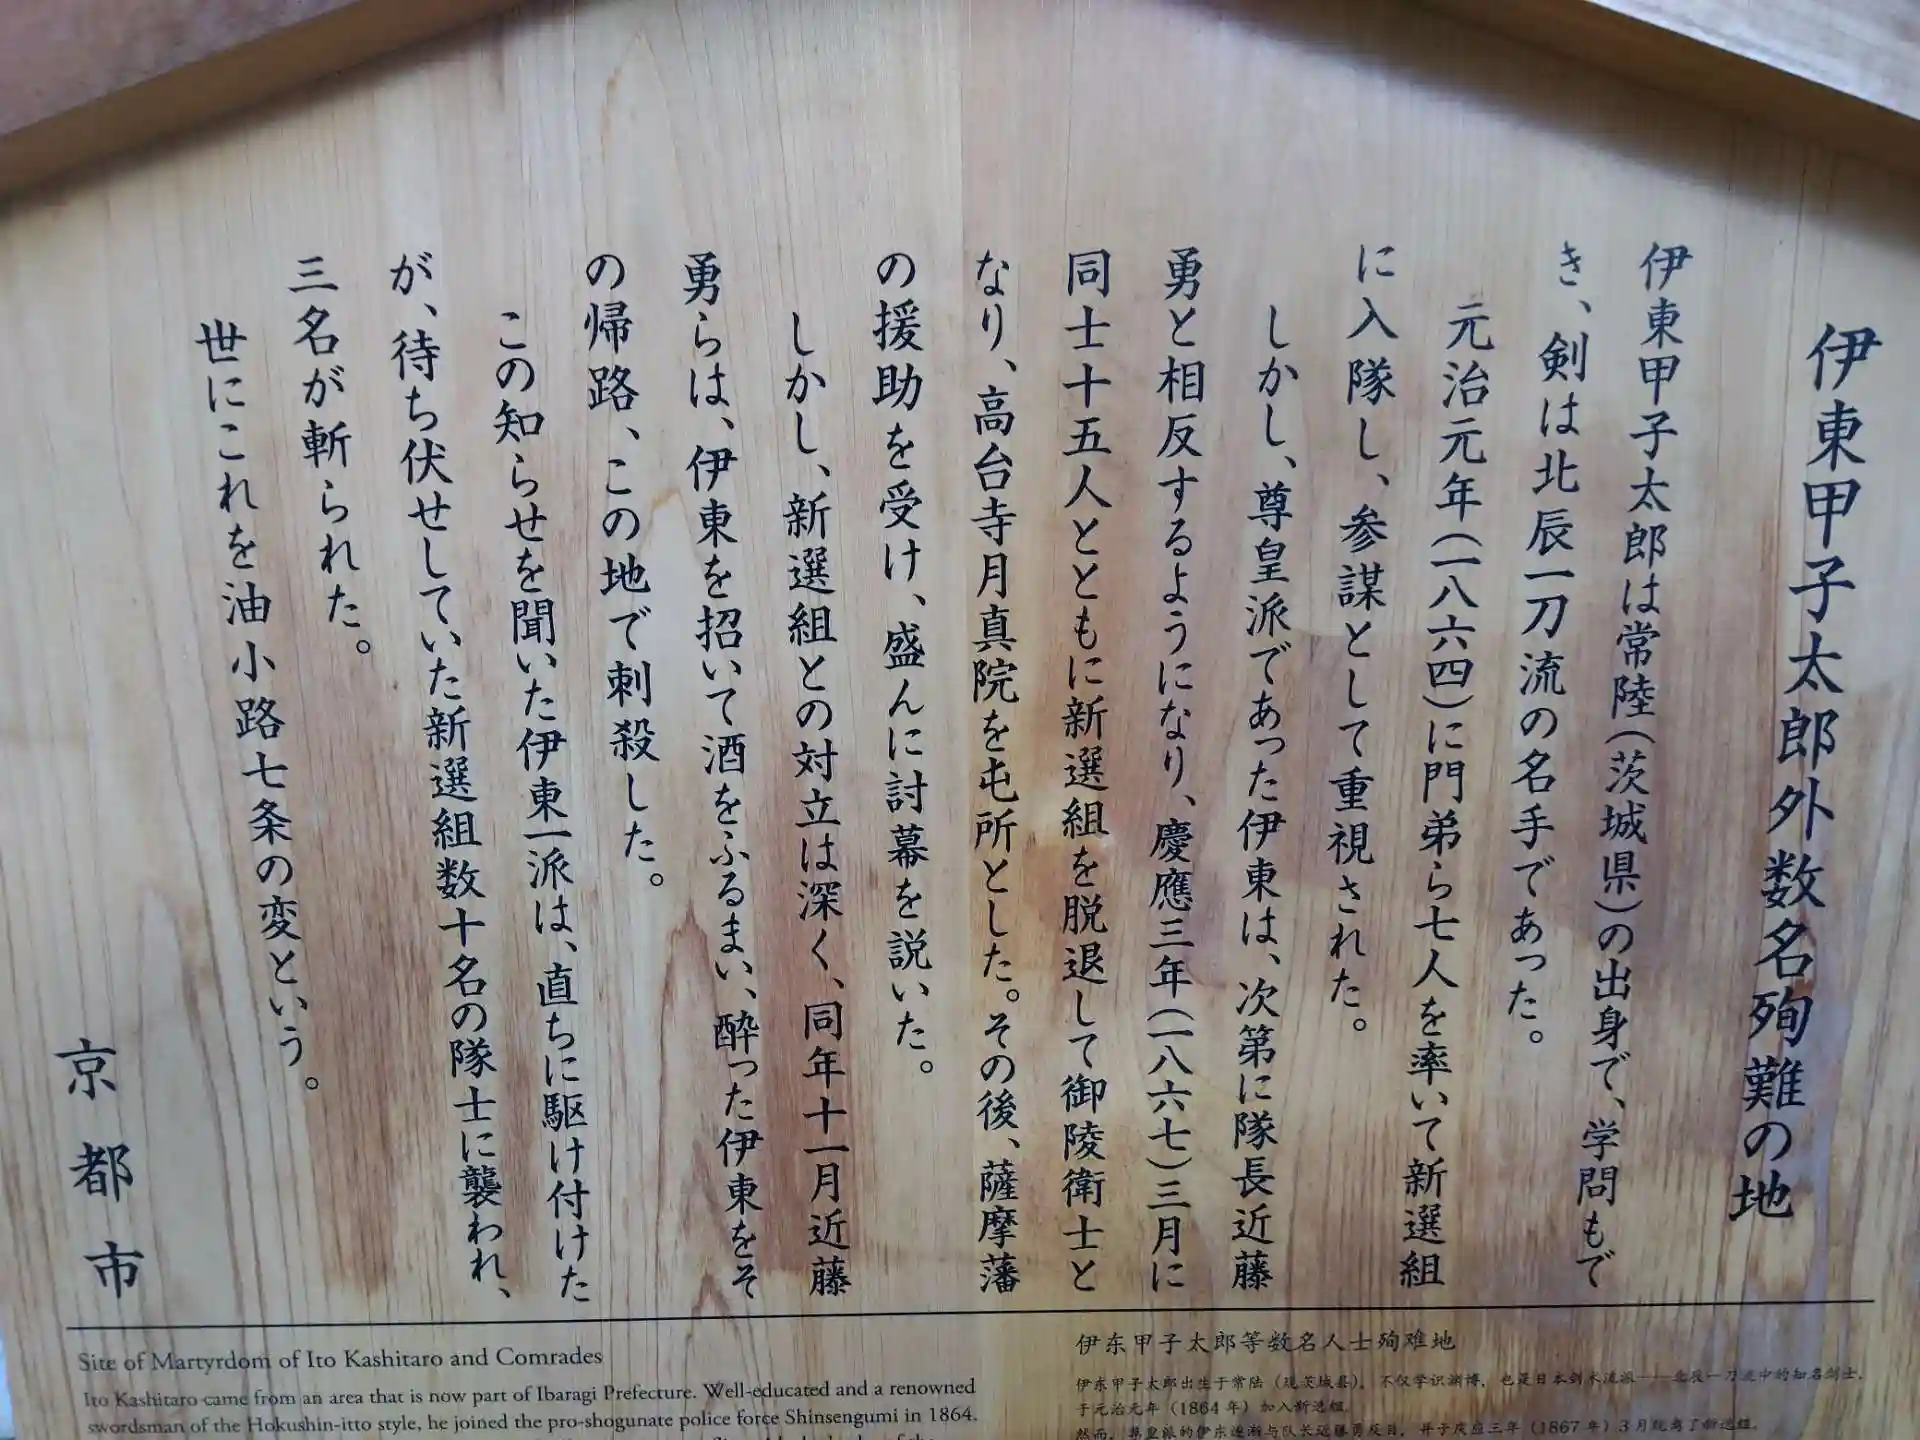 伊東甲子太郎外数名殉難の地
伊東甲子太郎は常陸(茨城県)の出身で、学問もで
き、剣は北辰一刀流の名手であった。
元治元年(一八六四)に門弟ら七人を率いて新選組
に入隊し、参謀として重視された。
しかし、尊皇派であった伊東は、次第に隊長近藤
勇と相反するようになり、慶應三年(一八六七)三月に
同士十五人とともに新選組を脱退して御陵衛士と
なり、高台寺月真院を屯所とした。その後、薩摩藩
の援助を受け、盛んに討幕を説いた。
しかし、新選組との対立は深く、同年十一月近藤
勇らは、伊東を招いて酒をふるまい、酔った伊東をそ
の帰路、この地で刺殺した。
この知らせを聞いた伊東一派は、直ちに駆け付けた
が、待ち伏せしていた新選組数十名の隊士に襲われ、
三名が斬られた。
世にこれを油小路七条の変という。
京都市
Site of Martyrdom of Ito Kashitaro and Comrades
Ito Kashitaro came from an area that is now part of Ibaragi Prefecture. Well-educated and a renowned
swordsman of the Hokushin-itto style, he joined the pro-shogunate police force Shinsengumi in 1864.
伊东甲子太郎等数名人士殉难地
伊东甲子太郎出生于常陆（现茨城县），不仅学识渊博，也是日本剑术流派——北辰一刀流中的知名剑士，
于元治元年（1864 年）加入新选组。
然而，尊皇派的伊东逐渐与队长近藤勇反目，并于庆应三年（1867 年）3 月脱离了新选组，